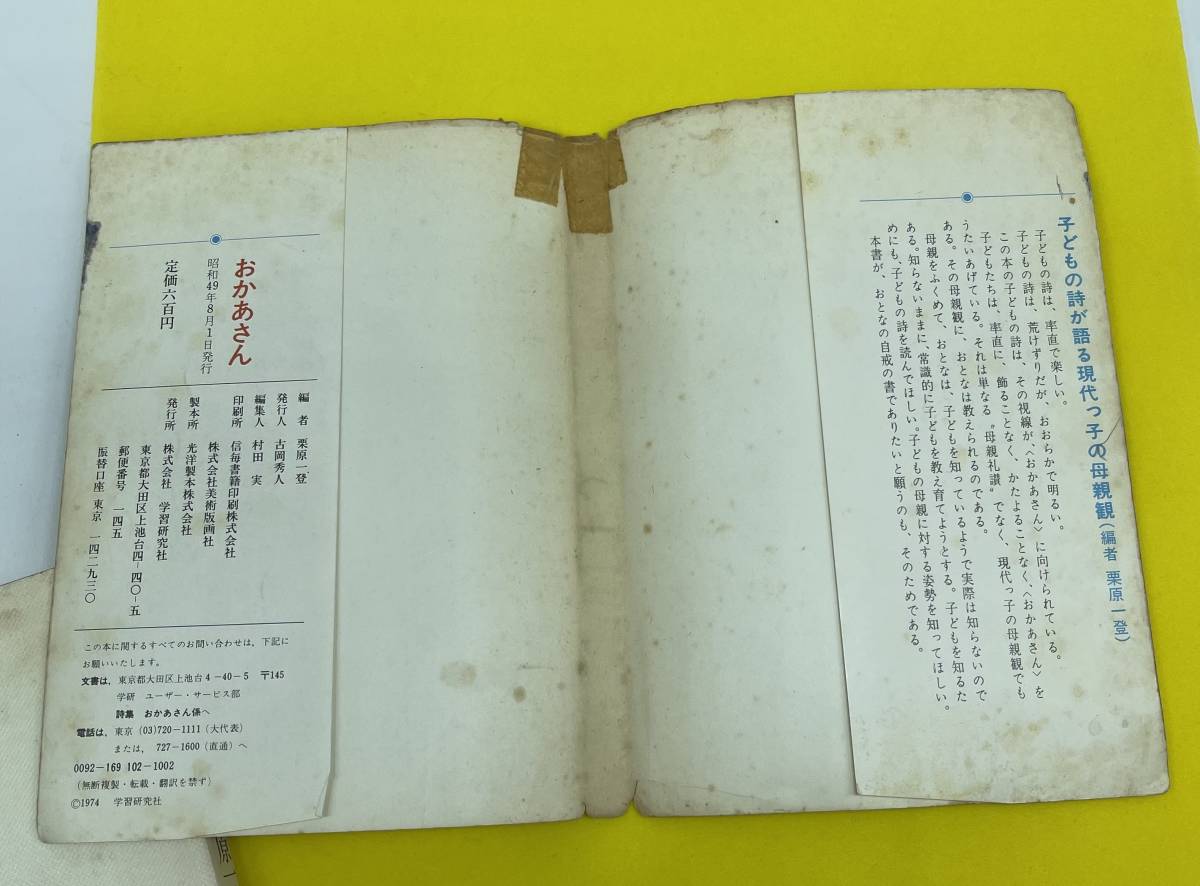 子どもの詩が語る現代っ子の母親観(編者 栗原一登)
子どもの詩は、率直で楽しい。
子どもの詩は、荒けずりだが、おおらかで明るい。
この本の子どもの詩は、その視線が、〈おかあさん〉に向けられている。
子どもたちは、率直に、飾ることなく、かたよることなく、〈おかあさん〉を
うたいあげている。それは単なる〝母親礼讃〟でなく、現代っ子の母親観でも
ある。その母親観に、おとなは教えられるのである。
母親をふくめて、おとなは、子どもを知っているようで実際は知らないので
ある。知らないままに、常識的に子どもを教え育てようとする。子どもを知るた
めにも、子どもの詩を読んでほしい。子どもの母親に対する姿勢を知ってほしい。
本書が、おとなの自戒の書でありたいと願うのも、そのためである。
おかあさん
昭和49年8月1日発行
定価六百円
編 者 栗原一登
発行人 古岡秀人
編集人 村田 実
印刷所 信毎書籍印刷株式会社
株式会社美術版画社
製本所 光洋製本株式会社
発行所 株式会社 学習研究社
東京都大田区上池台四-四〇-五
郵便番号 一四五
振替口座 東京 一四二九三〇
この本に関するすべてのお問い合わせは、下記に
お願いいたします。
文書は、東京都大田区上池台4-40-5 〒145
学研 ユーザー・サービス部
詩集 おかあさん係へ
電話は、東京(03)720-1111(大代表)
または、 727-1600(直通)へ
0092-169 102-1002
(無断複製・転載・翻訳を禁ず)
©1974 学習研究社
原一